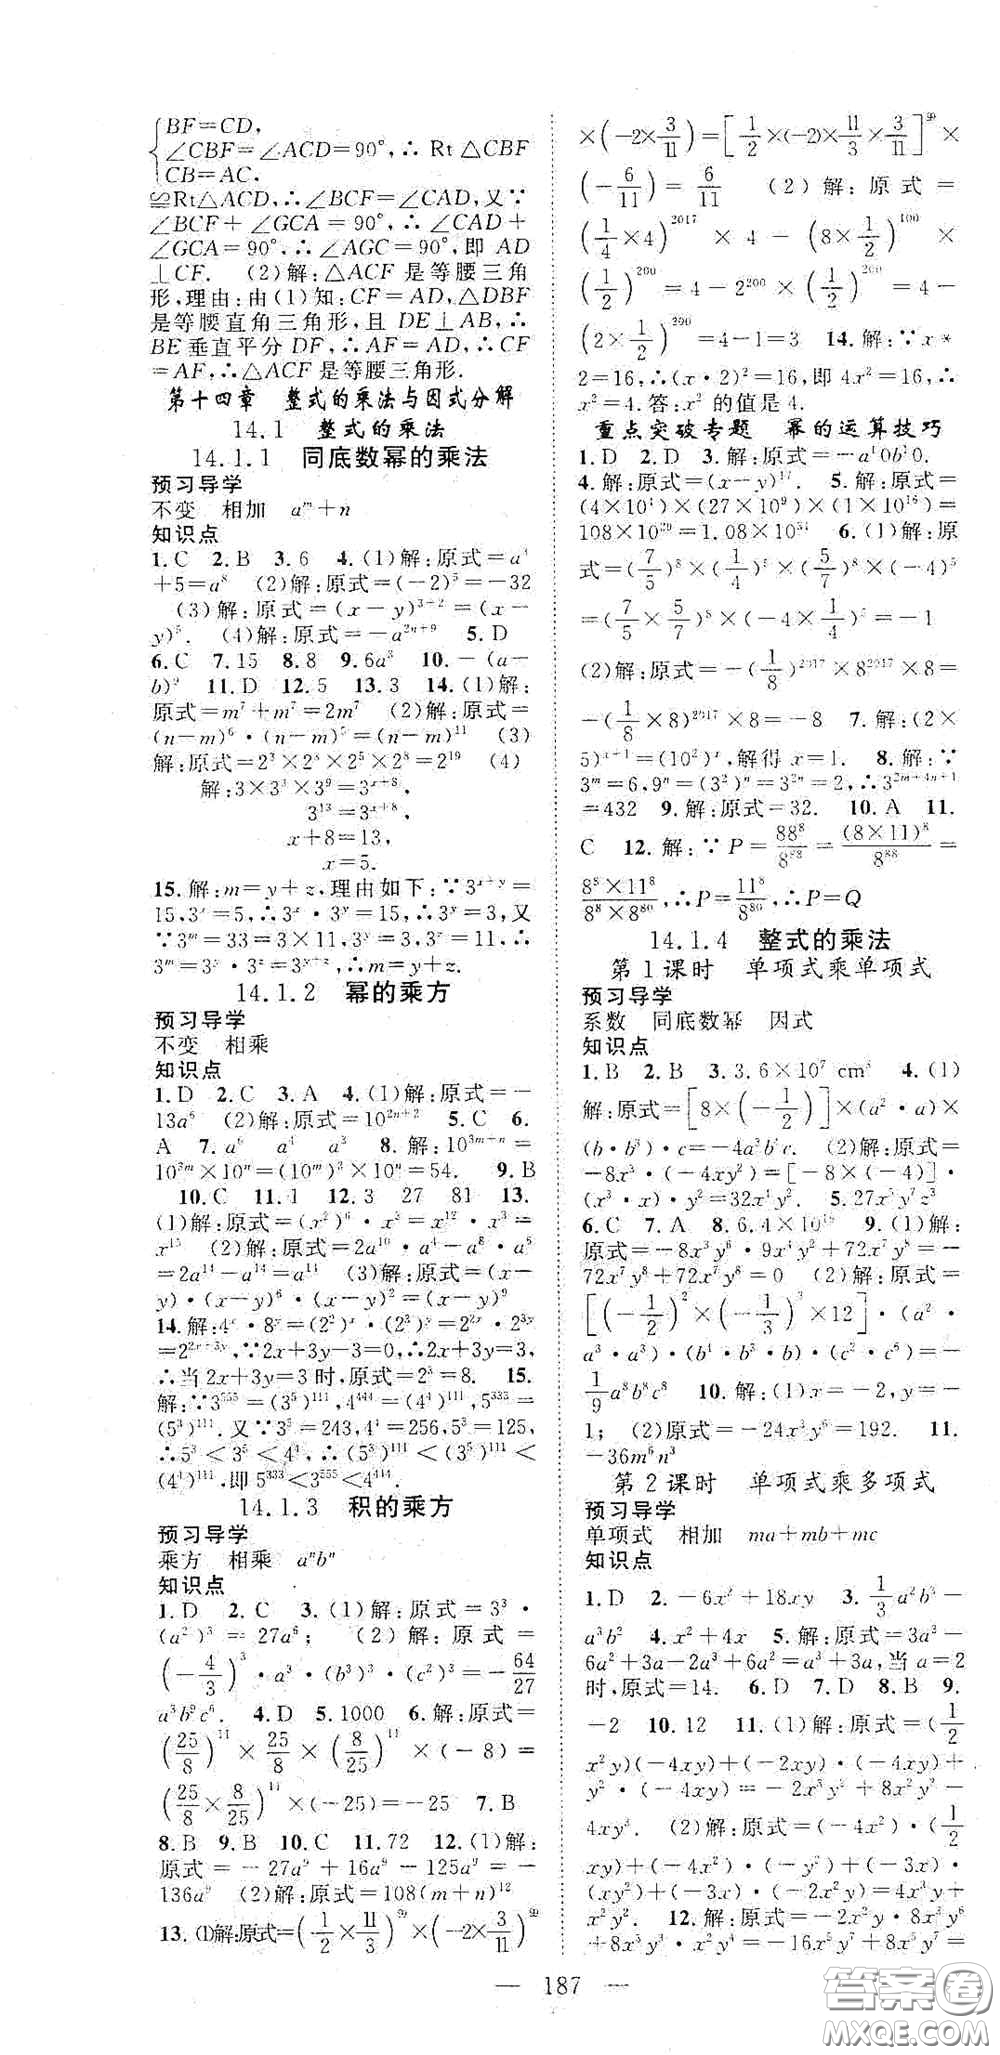 BF=CD,
∠CBF=∠ACD=90°,∴ Rt △CBF
CB=AC.
≌Rt△ACD,∴∠BCF=∠CAD,又∵
∠BCF+∠GCA=90°,∴∠CAD+
∠GCA=90°,∴∠AGC=90°,即 AD
⊥CF. (2)解:△ACF 是等腰三角
形,理由:由(1)知:CF=AD,△DBF
是等腰直角三角形,且 DE⊥AB,∴
BE 垂直平分 DF,∴AF=AD,∴CF
=AF,∴△ACF 是等腰三角形.
第十四章 整式的乘法与因式分解
14.1 整式的乘法
14.1.1 同底数幂的乘法
预习导学
不变 相加 a^m+n
知识点
1.C 2.B 3.6 4.(1)解:原式=a^3
+5=a^8 (2)解:原式=(-2)^5=-32
(3)解:原式=(x-y)^{3+2}=(x-
y)^5. (4)解:原式=-a^{2n+9} 5.D
6.C 7.15 8.8 9.6a^3 10.-(a-
b)^9 11.D 12.5 13.3 14.(1)解:
原式=m^7+m^7=2m^7 (2)解:原式=
(n-m)^6·(n-m)^5=(n-m)^11 (3)
解:原式=2^3×2^3×2^5×2^8=2^19 (4)
解:3×3^3×3^9=3^{x+8},
3^13=3^{x+8},
x+8=13,
x=5.
15.解:m=y+z,理由如下:∵3^{x+y}=
15,3^x=5,∴3^x·3^y=15,∴3^y=3,又
∵3^m=33=3×11,3^z=11,∴
3^m=3^y·3^z=3^{y+z},∴m=y+z.
14.1.2 幂的乘方
预习导学
不变 相乘
知识点
1.D 2.C 3.A 4.(1)解:原式=-
13a^6 (2)解:原式=10^{2n+2} 5.C 6.
A 7.a^6 a^4 a^3 8.解:10^{3m+n}=
10^{3m}×10^n=(10^m)^3×10^n=54. 9.B
10.C 11.1 12.3 27 81 13.
(1)解:原式=(x^2)^6·x^3=x^12·x^3=
x^15 (2)解:原式=2a^10·a^4-a^8·a^6
=2a^14-a^14=a^14 (3)解:原式=(x-
y)·(x-y)^6·(x-y)^2=(x-y)^9
14.解:4^x·8^y=(2^2)^x·(2^3)^y=2^{2x}·2^{3y}
=2^{2x+3y},∵2x+3y-3=0,∴2x+3y=3,
∴当 2x+3y=3 时,原式=2^3=8. 15.
解:∵3^555=(3^5)^111,4^444=(4^4)^111,5^333=
(5^3)^111.又∵3^5=243,4^4=256,5^3=125,
∴5^3<3^5<4^4,∴(5^3)^111<(3^5)^111<
(4^4)^111,即 5^333<3^555<4^444.
14.1.3 积的乘方
预习导学
乘方 相乘 a^n b^n
知识点
1.D 2.C 3.(1)解:原式=3^3·
(a^2)^3=27a^6; (2)解:原式=
(-4/3)^3·a^3·(b^3)^3·(c^2)^3=-64/27
a^3b^9c^6. 4.D 5.1000 6.解:原式=
(25/8)^11×25/8×(8/25)^11×(-8)=
(25/8×8/25)^11×(-25)=-25 7.B
8.B 9.B 10.C 11.72 12.(1)解:
原式=-27a^9+16a^9-125a^9=-
136a^9 (2)解:原式=108(m+n)^12
13.(1)解:原式=(1/2×11/3)^99×(-2×3/11)^99
×(-2×3/11)=[1/2×(-2)×11/3×3/11]^99×
(-6/11)=6/11 (2)解:原式=
(1/4×4)^2017×4-(8×1/2)^100×
(1/2)^200=4-2^200×(1/2)^200=4-
(2×1/2)^200=4-1=3 14.解:∵x*
2=16,∴(x·2)^2=16,即 4x^2=16,∴
x^2=4.答:x^2 的值是 4.
重点突破专题 幂的运算技巧
1.D 2.D 3.解:原式=-a^10b^10.
4.解:原式=(x-y)^17. 5.解:原式=
(4×10^4)×(27×10^9)×(1×10^16)=
108×10^29=1.08×10^31 6.(1)解:原
式=(7/5)^8×(1/4)^5×(5/7)^8×(-4)^5
=(7/5×5/7)^8×(-4×1/4)^5=-1
(2)解:原式=-(1/8)^2017×8^2017×8=
-(1/8×8)^2017×8=-8 7.解:(2×
5)^{x+1}=(10^2)^x,解得 x=1. 8.解:∵
3^m=6,9^n=(3^2)^n=3^{2n}=2,∴3^{2m+4n+1}
=432 9.解:原式=32. 10.A 11.
C 12.解:∵P=88^8/8^88=(8×11)^8/8^88=
8^8×11^8/8^8×8^80,∴P=11^8/8^80,∴P=Q
14.1.4 整式的乘法
第1课时 单项式乘单项式
预习导学
系数 同底数幂 因式
知识点
1.B 2.B 3.3.6×10^7 cm^3 4.(1)
解:原式=[8×(-1/2)]×(a^2·a)×
(b·b^3)·c=-4a^3b^4c (2)解:原式=
-8x^3·(-4xy^2)=[-8×(-4)]·
(x^3·x)·y^2=32x^4y^2. 5.27x^5y^7z^3
6.C 7.A 8.6.4×10^16 9.(1)解:
原式=-8x^3y^6·9x^4y^2+72x^7y^8=-
72x^7y^8+72x^7y^8=0 (2)解:原式=
[(-1/2)^2×(-1/3)^3×12]·(a^2·
a^3·a^3)·(b^4·b^3·b)·(c^2·c^6)=-
1/9 a^8b^8c^8 10.解:(1)x=2,y=-
1; (2)原式=-24x^3y^6=192. 11.
-36m^6n^3
第2课时 单项式乘多项式
预习导学
单项式 相加 ma+mb+mc
知识点
1.D 2.-6x^2+18xy 3.1/3a^2b^3-
a^3b^2 4.x^2+4x 5.解:原式=3a^3-
6a^2+3a-2a^3+6a^2=a^3+3a,当 a=2
时,原式=14. 6.D 7.D 8.B 9.
-2 10.12 11.(1)解:原式=(1/2
x^2y)(-4xy)+(-2xy)·(-4xy)+
y^2·(-4xy)=-2x^3y^2+8x^2y^2-
4xy^3. (2)解:原式=(-4x^2)·(1/2
xy)+(-4x^2)·(-y^2)+(-3x)·
(xy^2)+(-3x)·(-2x^2)=4x^2y^2
12.解:原式=-2x^2y·8x^3y^3
+8x^3y^3·(-xy)=-16x^5y^4-8x^4y^4
— 187 —
答案圈
MXQE.COM